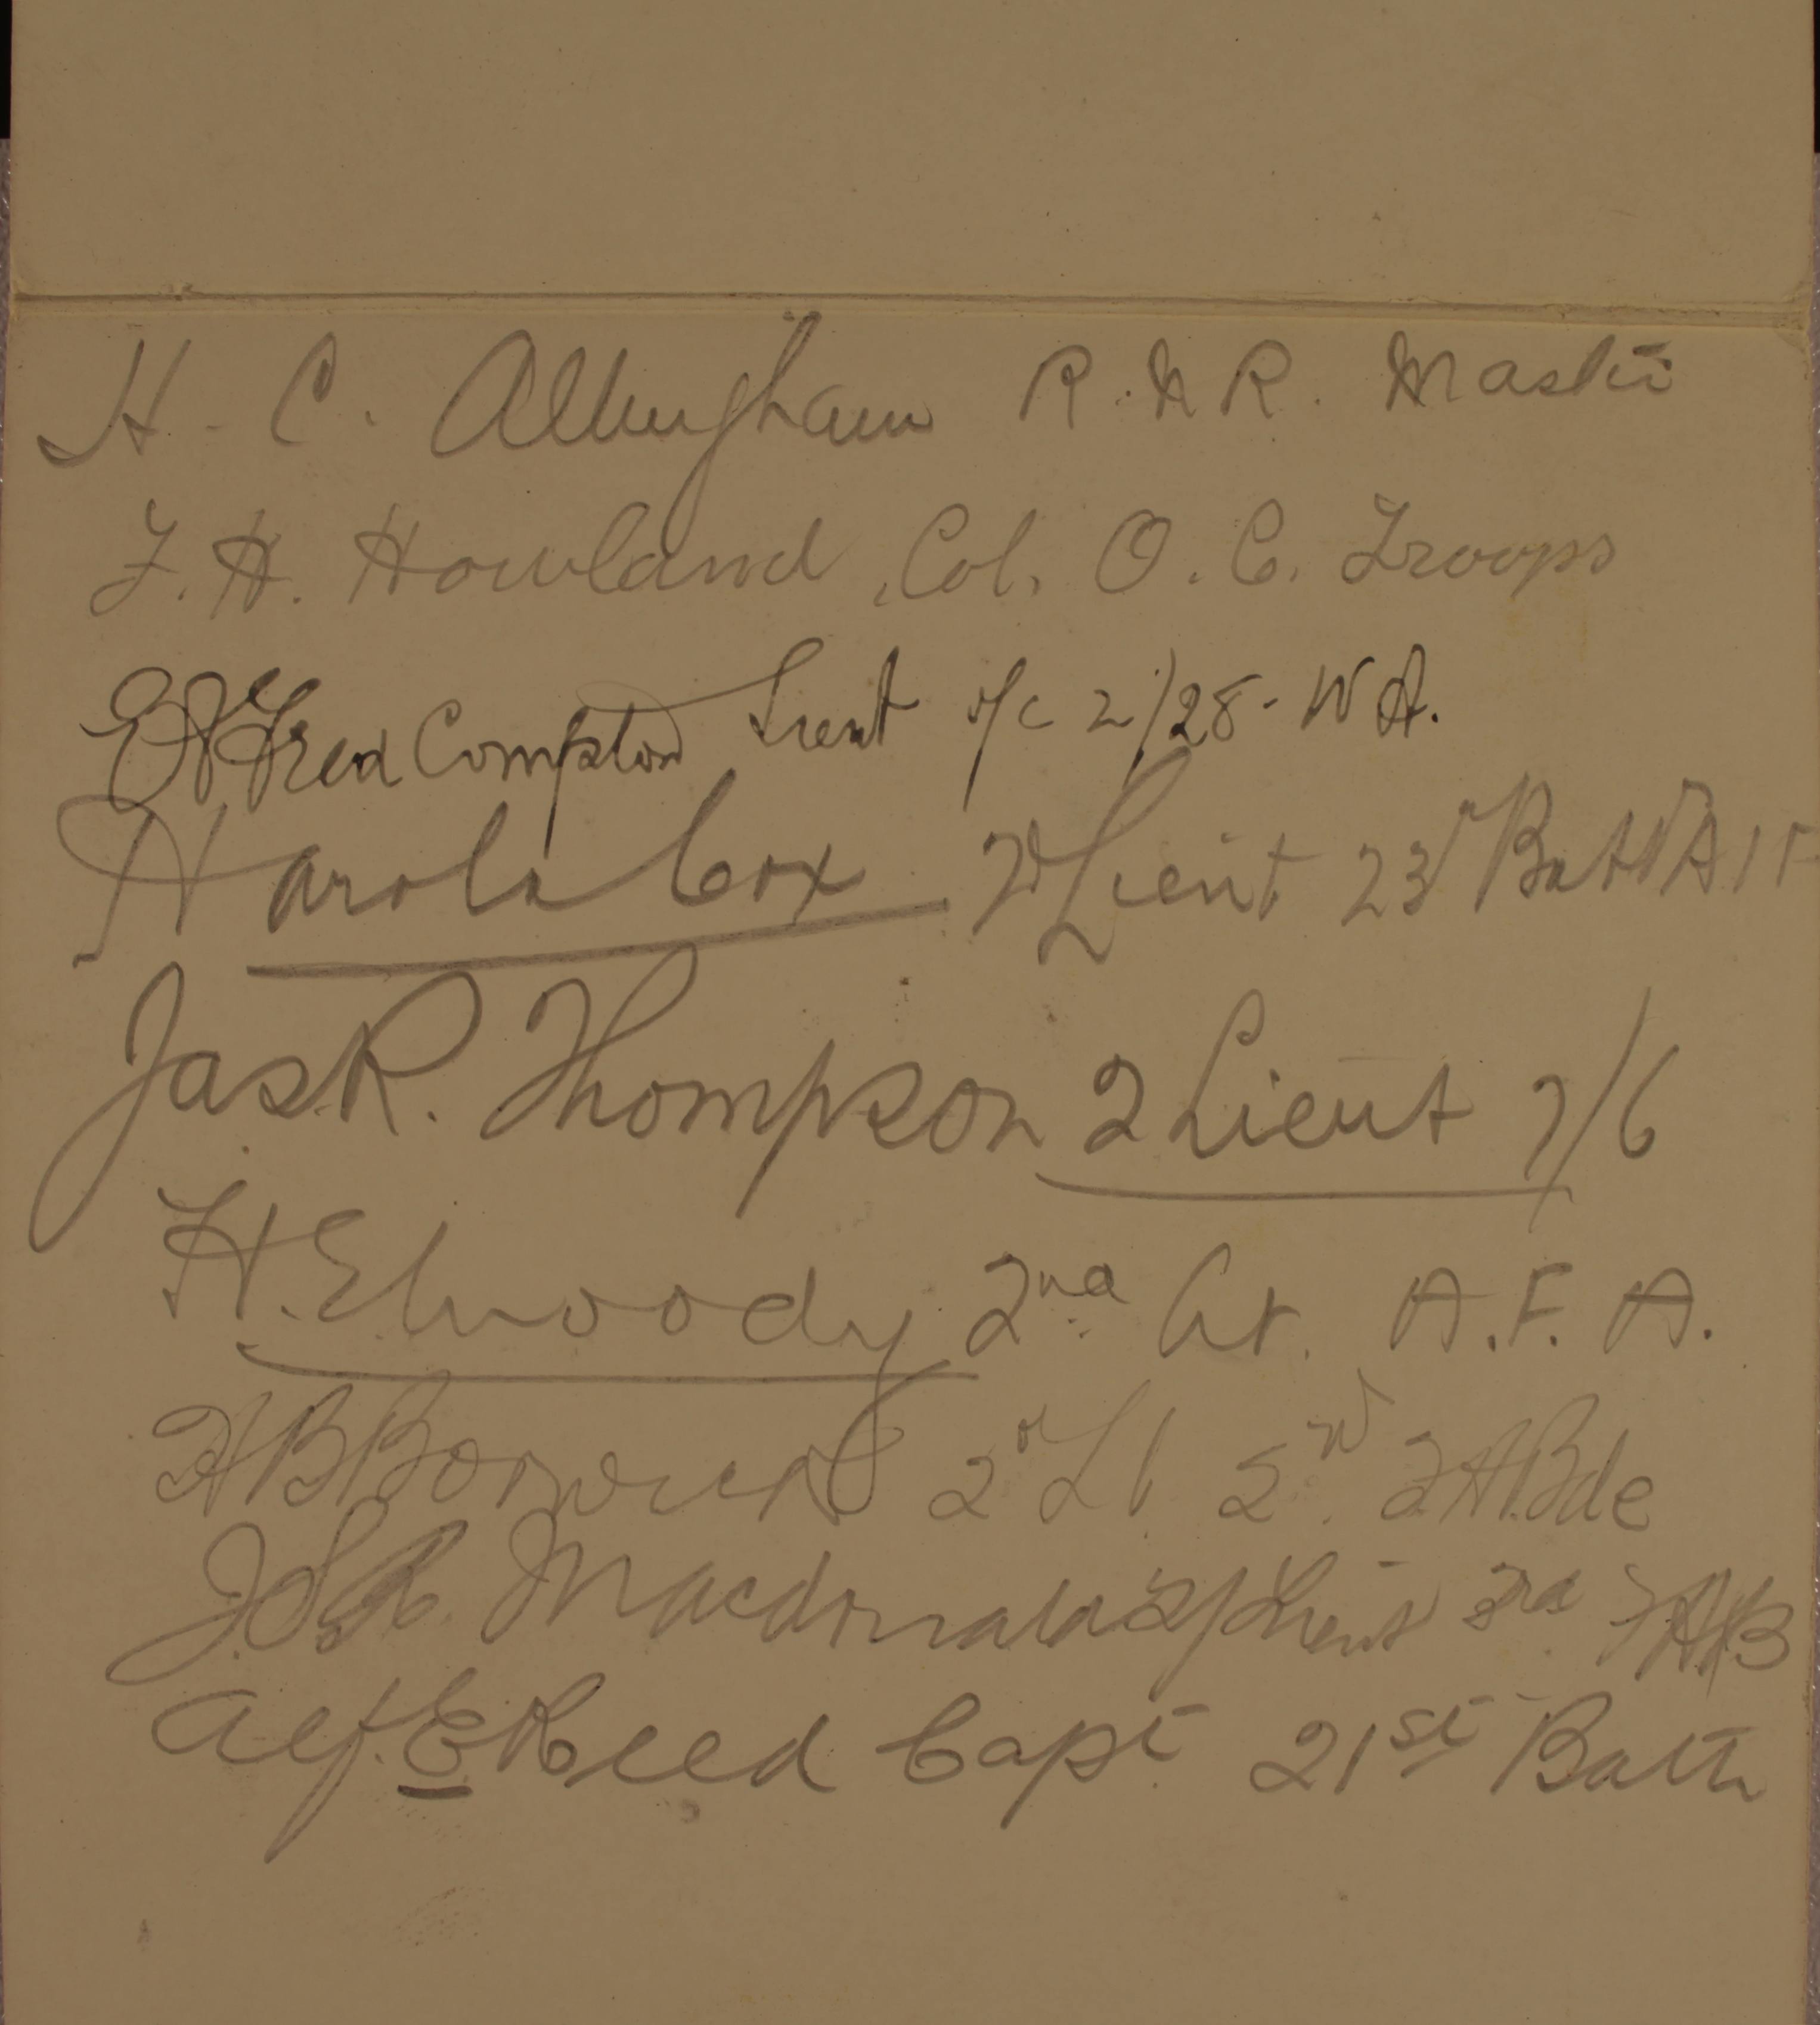 H. C. Allingham R.N.R. Master
F. H. Howland, Col. O. C. Troops
Fred Compton Lieut o/c 2/28 - W A.
Harold Cox 2d Lieut 23d Batt AIF
Jas R. Thompson 2 Lieut 7/6
H. Elwoody 2nd Lt. A. F. A.
2d Lt. 2nd FABde
Macdonald 2/Lieut 3rd FAB
Alf. E Reed Capt 21st Battn